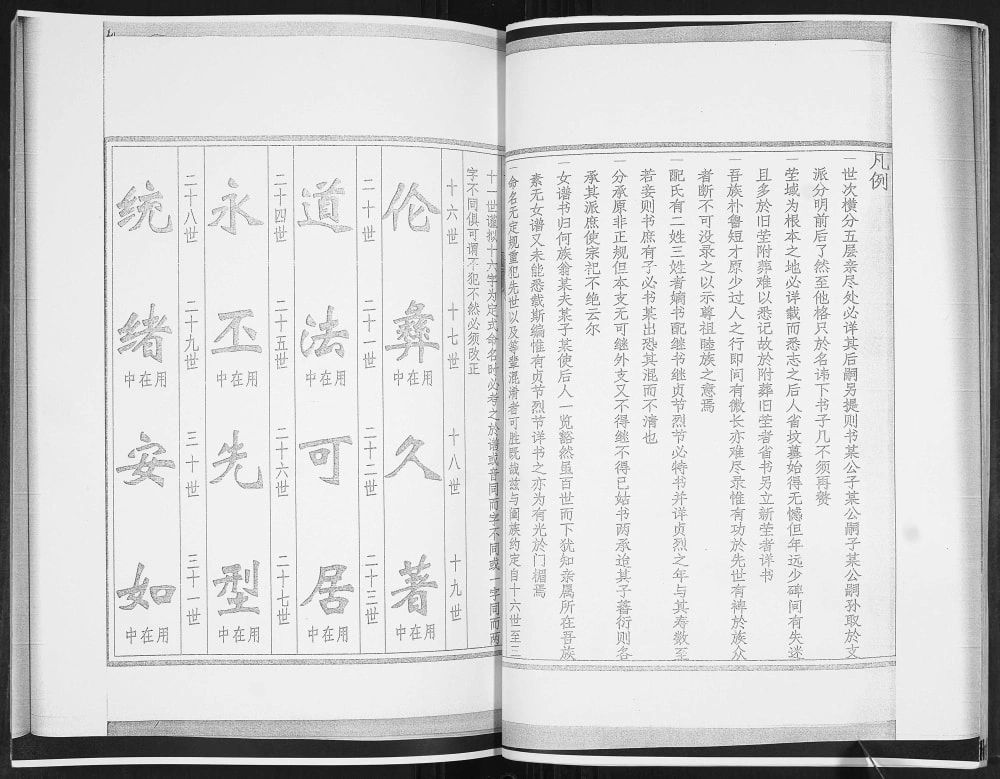 凡例
一世次横分五层亲尽处必详其后嗣另提则书某公子某公嗣子某公嗣孙取於支
派分明前后了然至他格只於名讳下书子几不须再赘
一茔域为根本之地必详载而悉志之后人省坟墓始得无憾但年远少碑间有失迷
且多於旧茔附葬难以悉记故於附葬旧茔者省书另立新茔者详书
一吾族朴鲁短才原少过人之行即间有微长亦难尽录惟有功於先世有裨於族众
者断不可没录之以示尊祖睦族之意焉
一配氏有二姓三姓者嫡书配继书继贞节烈节必特书并详贞烈之年与其寿数至
若妾则书庶有子必书某出恐其混而不清也
一分承原非正规但本支无可继外支又不得继不得已姑书两承迨其子蕃衍则各
承其派庶使宗祀不绝云尔
一女谱书归何族翁某夫某子某使后人一览豁然虽百世而下犹知亲属所在吾族
素无女谱又未能悉载斯编惟有贞节烈节详书之亦为有光於门楣焉
一命名无定规重犯先世以及等辈混淆者可胜既哉兹与阖族约定自十六世至三
十一世谨拟十六字为定式命名时必考之於谱或音同而字不同或一字同而两
字不同俱可谓不犯不然必须改正
十六世 十七世 十八世 十九世
伦 彝 久 著
中在用 中在用
二十世 二十一世 二十二世 二十三世
道 法 可 居
中在用 中在用
二十四世 二十五世 二十六世 二十七世
永 丕 先 型
中在用 中在用
二十八世 二十九世 三十世 三十一世
统 绪 安 如
中在用 中在用